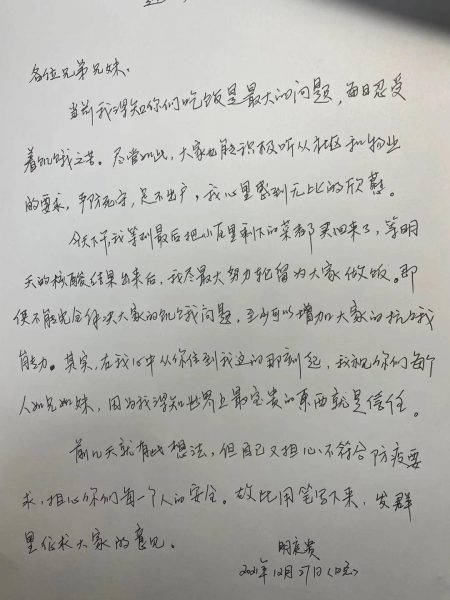 各位兄弟兄妹、
当前我得知你们吃饭是最大的问题，每日忍受
着饥饿之苦。尽管如此，大家也能积极听从社区和物业
的要求，严防死守，足不出户，我心里感到无上比的欣慰。
今天下午，我等到最后把小店里剩下的菜都买回来了，等明
天的核酸结果出来后，我尽最大努力轮留为大家做饭。即
使不能完全解决大家的饥饿问题，至少可以增加大家的抗饥饿
能力。其实，在我心中从你住到我这的那刻起，我视你们每个
人如兄如妹，因为我得知世界上最宝贵的東西就是信任。
前几天就有此想法，但自己又担心不符合防疫要
求，担心你们每一个人的安全。故此用笔写下来，发群
里征求大家的意见。
明
贵
2021年12月27日